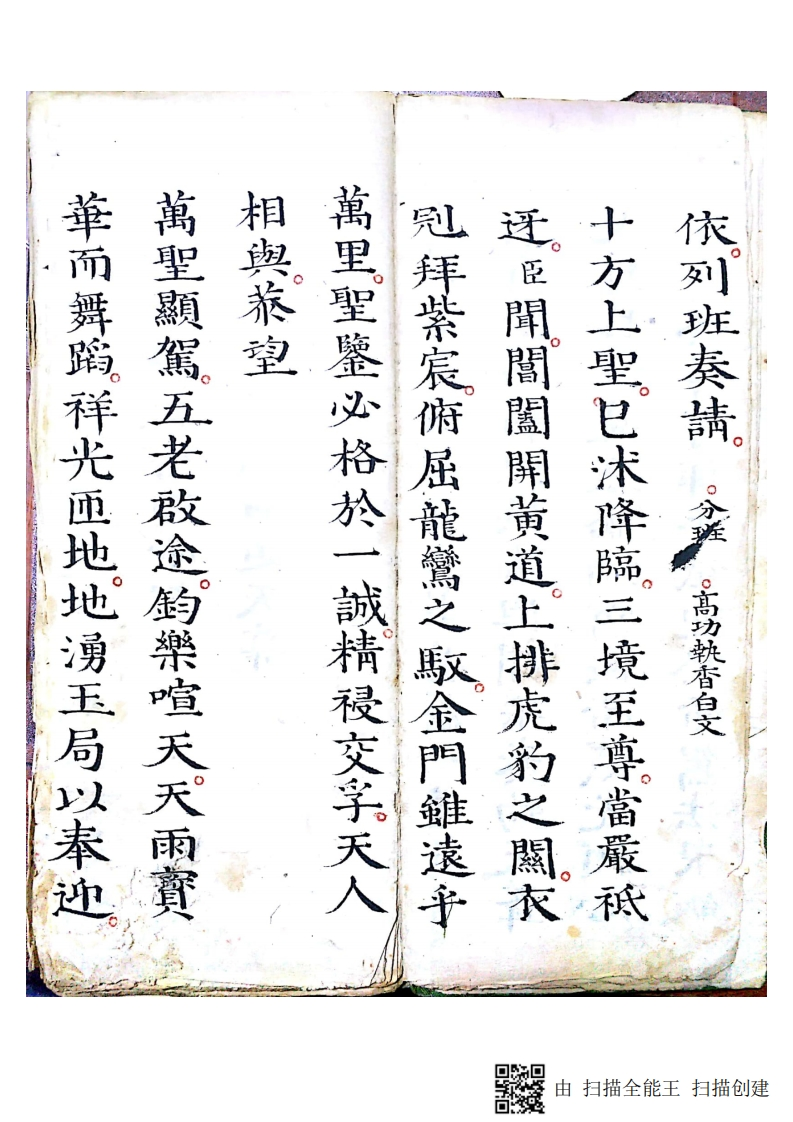 依列班奏請 分班 高功執香白文
十方上聖已沭降臨三境至尊當嚴祗
迓臣聞閶闔開黄道上排虎豹之關衣
冠拜紫宸俯屈龍鸞之馭金門雖遠乎
萬里聖鑒必格於一誠精祲交孚天人
相與恭望
萬聖顯駕五老啟途鈞樂喧天天雨寳
華而舞蹈祥光匝地地湧玉局以奉迎
由 扫描全能王 扫描创建